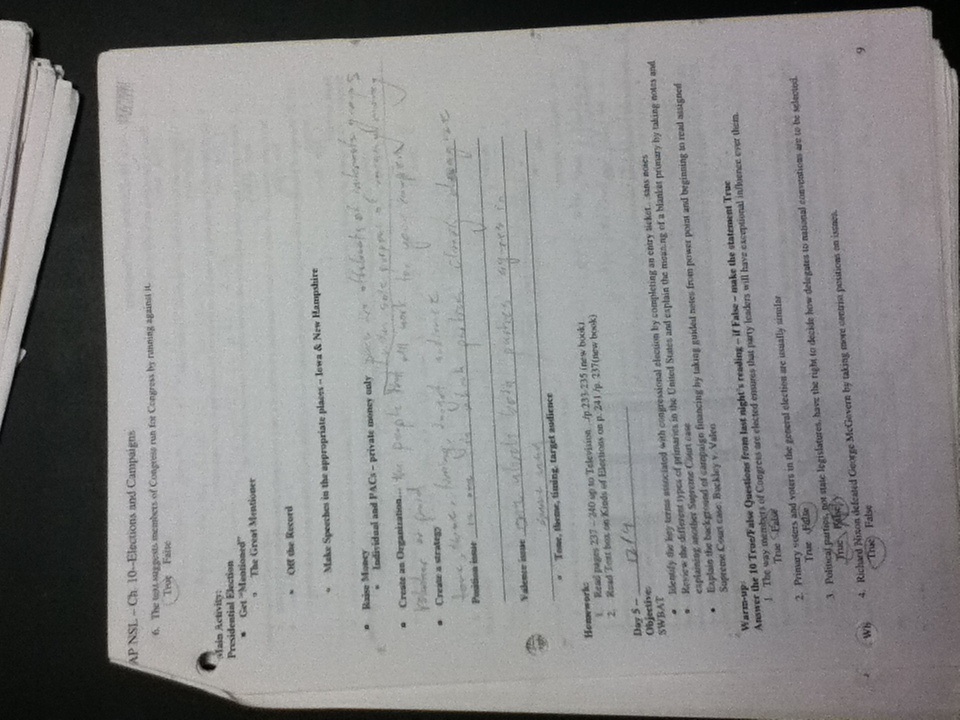 AP NSL – Ch. 10--Elections and Campaigns
6. The text suggests members of Congress run for Congress by running against it.
True False
Main Activity:
Presidential Election
Get "Mentioned"
The Great Mentioner
Off the Record
Make Speeches in the appropriate places – Iowa & New Hampshire
Raise Money
Individual and PACs – private money only pacs are of interests groups
sole purpose of money
Create an Organization... the people that all work for your campaign
volunteer or paid
Create a strategy
tone, theme, timing, target audience
Position issue is one in which parties clearly disagree
Valence issue one which both parties agree
Tone, theme, timing, target audience
Homework:
1. Read pages 237 – 240 up to Television .../p.233-235 (new book)
2. Read Text box on Kinds of Elections on p. 241 /p. 237(new book)
Day 5 – 12/4
Objective:
SWBAT
Identify the key terms associated with congressional election by completing an entry ticket.. sans notes
Review the different types of primaries in the United States and explain the meaning of a blanket primary by taking notes and
explaining another Supreme Court case
Explain the background of campaign financing by taking guided notes from power point and beginning to read assigned
Supreme Court case: Buckley v. Valeo
Warm-up:
Answer the 10 True/False Questions from last night's reading – if False – make the statement True
1. The way members of Congress are elected ensures that party leaders will have exceptional influence over them.
True False
2. Primary voters and voters in the general election are usually similar
True False
3. Political parties, not state legislatures, have the right to decide how delegates to national conventions are to be selected.
True False
4. Richard Nixon defeated George McGovern by taking more centrist positions on issues.
True False
9